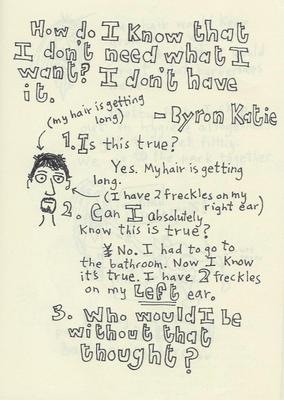 How do I know that
I don't need what I
want? I don't have
it.
(my hair is getting
long)
– Byron Katie
1. Is this true?
Yes. My hair is getting
long.
(I have 2 freckles on my
right ear)
2. Can I absolutely
know this is true?
¥ No. I had to go to
the bathroom. Now I know
it's true. I have 2 freckles
on my LEFT ear.
3. Who would I be
without that
thought?